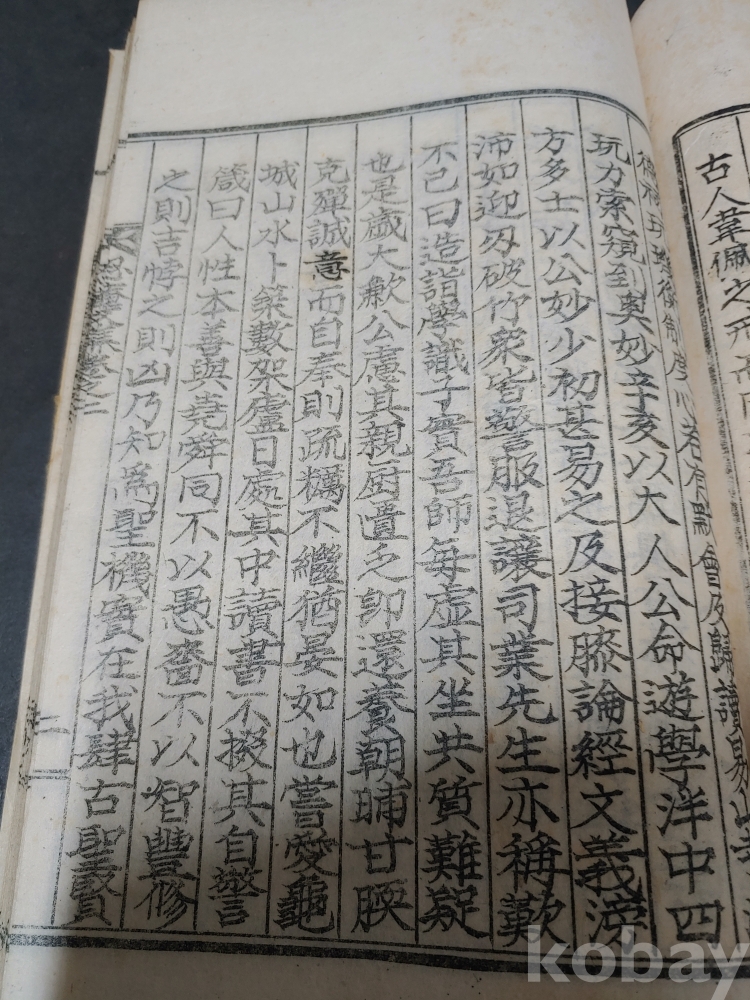 古人韋佩之
後制度心若有默會及歸讀易
玩力索窺到奧妙辛亥以大人公命遊學泮中四
方多士以公妙少初甚易之及接膝論經文義滂
沛如迎刃破竹衆皆驚服退讓司業先生亦稱歎
不已曰造詣學識子實吾師每虛其坐共質難疑
也是歲大歉公慮其親厨匱乏卽還養朝晡甘腴
克殫誠意而自奉則疏糲不繼猶晏如也嘗愛龜
城山水卜築數架虛日處其中讀書不掇其自警
箴曰人性本善與堯舜同不以愚嗇不以智豐修
之則吉悖之則凶乃知爲聖機實在我肆古聖賢
卷之二
二
kobay